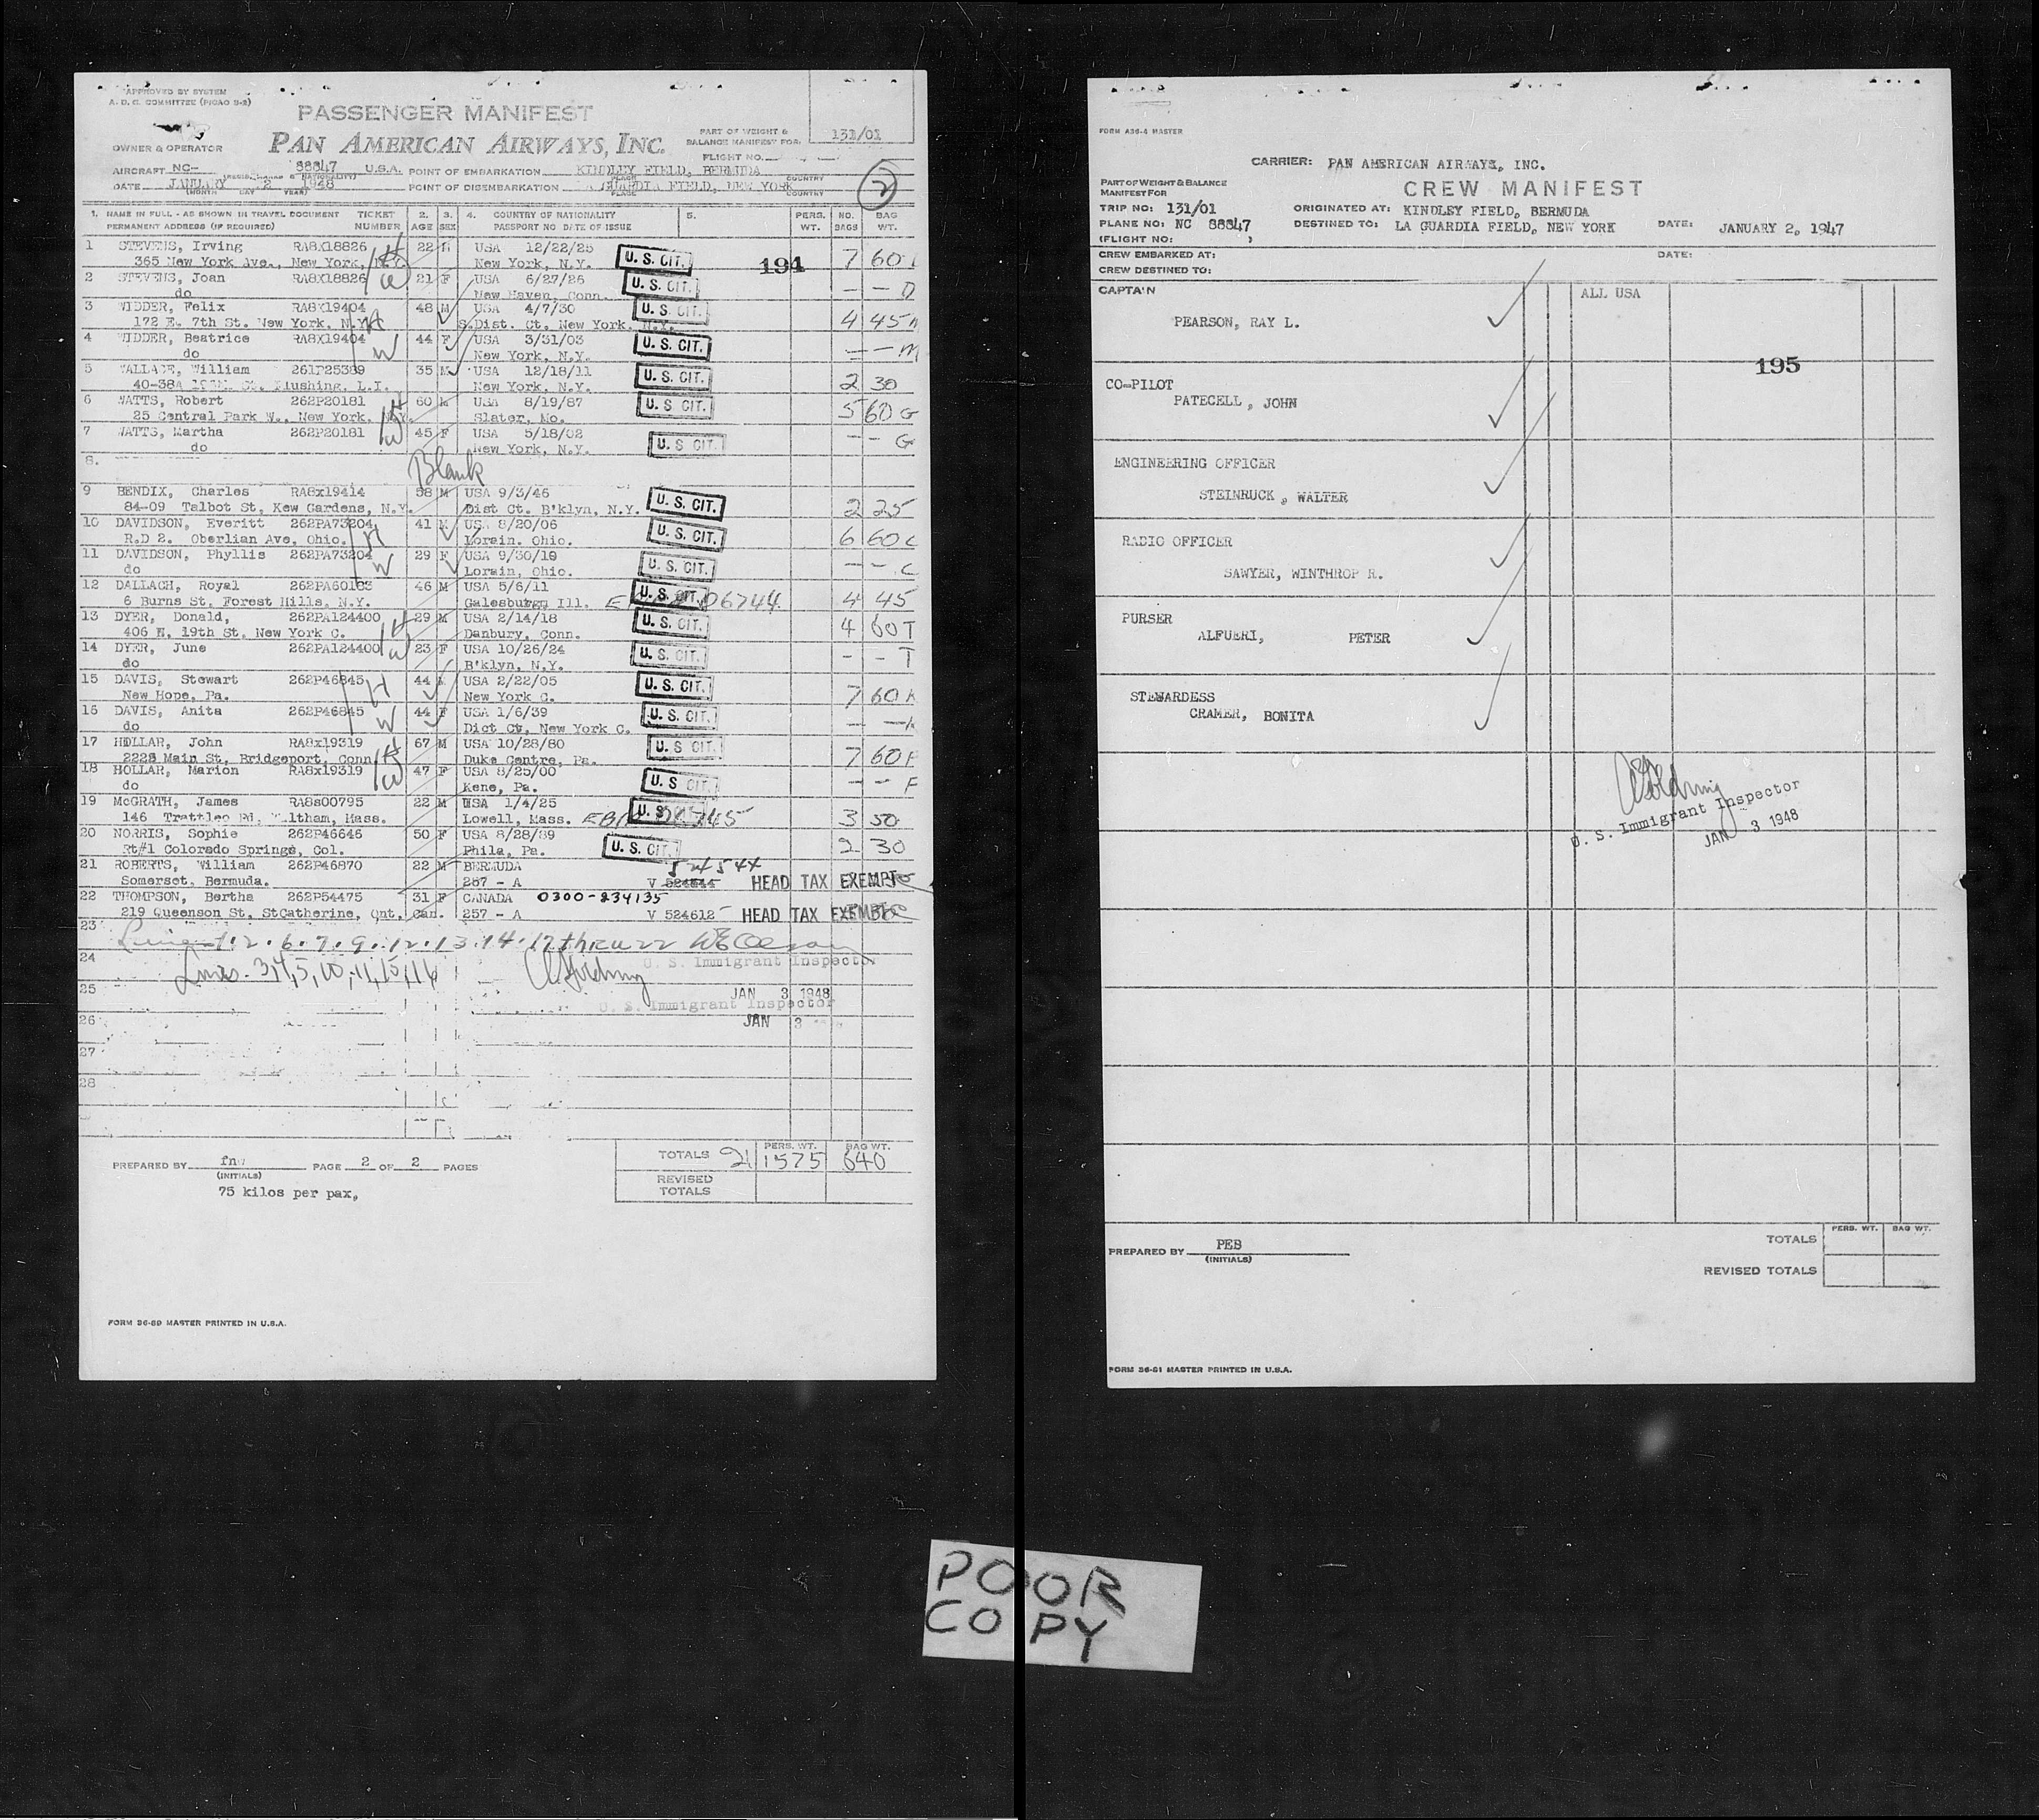 APPROVED BY SYSTEM
A. D. C. COMMITTEE (PICAO S-2)
PASSENGER MANIFEST
OWNER & OPERATOR PAN AMERICAN AIRWAYS, INC.
PART OF WEIGHT &
BALANCE MANIFEST FOR: 131/01
FLIGHT NO.
AIRCRAFT NC- 88847 U.S.A. POINT OF EMBARKATION KINDLEY FIELD, BERMUDA
DATE JANUARY 2 1948 POINT OF DISEMBARKATION GUARDIA FIELD, NEW YORK
(MONTH DAY YEAR) PLACE COUNTRY
2
1. NAME IN FULL - AS SHOWN IN TRAVEL DOCUMENT TICKET 2. 3. 4. COUNTRY OF NATIONALITY 5. PERS. NO. BAG
PERMANENT ADDRESS (IF REQUIRED) NUMBER AGE SEX PASSPORT NO DATE OF ISSUE WT. BAGS WT.
1 STEVENS, Irving RA8X18826 H 22 M USA 12/22/25 U. S. CIT. 194 7 60
365 New York Ave., New York, N.Y. New York, N.Y.
2 STEVENS, Joan RA8X18826 W 21 F USA 6/27/26 U. S. CIT. — — D
do New Haven, Conn.
3 WIDDER, Felix RA8X19404 H 48 M USA 4/7/30 U. S. CIT. 4 45
172 E. 7th St. New York, N.Y. S.Dist. Ct, New York. N.Y.
4 WIDDER, Beatrice RA8X19404 W 44 F USA 3/31/03 U. S. CIT. — — M
do New York, N.Y.
5 WALLACE, William 261P25389 35 M USA 12/18/11 U. S. CIT. 2 30
40-38A St. Flushing, L.I. New York, N.Y.
6 WATTS, Robert 262P20181 H 60 M USA 8/19/87 U. S CIT. 5 60 G
25 Central Park W., New York. N.Y. Slater, Mo.
7 WATTS, Martha 262P20181 W 45 F USA 5/18/02 U. S CIT. — — G
do New York, N.Y.
8. Blank
9 BENDIX, Charles RA8x19414 58 M USA 9/3/46 U. S. CIT. 2 25
84-09 Talbot St, Kew Gardens, N.Y. Dist Ct. B'klyn, N.Y.
10 DAVIDSON, Everitt 262PA73204 H 41 M US. 8/20/06 U. S. CIT. 6 60 C
R.D 2. Oberlian Ave, Ohio. Lorain. Ohio.
11 DAVIDSON, Phyllis 262PA73204 W 29 F USA 9/30/18 U. S. CIT. — — C
do Lorain, Ohio.
12 DALLACH, Royal 262PA60183 46 M USA 5/6/11 U. S. CIT. 4 45
6 Burns St, Forest Hills, N.Y. Galesburgh Ill. 06744
13 DYER, Donald, 262PA124400 H 29 M USA 2/14/18 U. S. CIT. 4 60 T
406 E. 19th St, New York C. Danbury, Conn.
14 DYER, June 262PA124400 W 23 F USA 10/26/24 U. S. CIT. - - T
do B'klyn, N.Y.
15 DAVIS, Stewart 262P46845 H 44 M USA 2/22/05 U. S. CIT. 7 60 K
New Hope, Pa. New York C.
16 DAVIS, Anita 262P46845 W 44 F USA 1/6/39 U. S. CIT. — — K
do Dict Ct, New York C.
17 HOLLAR, John RA8x19319 H 67 M USA 10/28/80 U. S CIT. 7 60 F
2228 Main St, Bridgeport, Conn Duke Centre, Pa.
18 HOLLAR, Marion RA8x19319 W 47 F USA 8/25/00 U. S CIT. — — F
do Kene, Pa.
19 McGRATH, James RA8s00795 22 M USA 1/4/25 U. S. 3 50
146 Trattleo Rd, Waltham, Mass. Lowell, Mass.
20 NORRIS, Sophie 262P46646 50 F USA 8/28/89 U. S. CIT. 2 30
Rt#1 Colorado Springs, Col. Phila, Pa.
21 ROBERTS, William 262P46870 22 M BERMUDA 524544
Somerset, Bermuda. 287 - A V HEAD TAX EXEMPT
22 THOMPSON, Bertha 262P54475 31 F CANADA 0300-234135
219 Queenson St, StCatherine, Ont, Can. 257 - A V 524612 HEAD TAX EXEMPT
23 Lines 1. 2. 6. 7. 9. 12. 13. 14. 17 thru 22
24 Lines. 3,4,5,10,11,15,16 U. S. Immigrant Inspector
25 JAN 3 1948
U. S. Immigrant Inspector
26 JAN 3
27
28
PREPARED BY fnw PAGE 2 OF 2 PAGES
(INITIALS)
75 kilos per pax,
PERS. WT. BAG WT.
TOTALS 21 1575 640
REVISED
TOTALS
FORM 36-60 MASTER PRINTED IN U.S.A.
FORM A36-4 MASTER
CARRIER: PAN AMERICAN AIRWAYS, INC.
PART OF WEIGHT & BALANCE
MANIFEST FOR CREW MANIFEST
TRIP NO: 131/01 ORIGINATED AT: KINDLEY FIELD, BERMUDA
PLANE NO: NC 88847 DESTINED TO: LA GUARDIA FIELD, NEW YORK DATE: JANUARY 2, 1947
(FLIGHT NO: )
CREW EMBARKED AT: DATE:
CREW DESTINED TO:
CAPTAIN ALL USA
PEARSON, RAY L.
195
CO-PILOT
PATECELL , JOHN
ENGINEERING OFFICER
STEINRUCK , WALTER
RADIO OFFICER
SAWYER, WINTHROP R.
PURSER
ALFUERI, PETER
STEWARDESS
CRAMER, BONITA
U. S. Immigrant Inspector
JAN 3 1948
PREPARED BY PEB
(INITIALS)
PERS. WT. BAG WT.
TOTALS
REVISED TOTALS
FORM 36-61 MASTER PRINTED IN U.S.A.
POOR
COPY